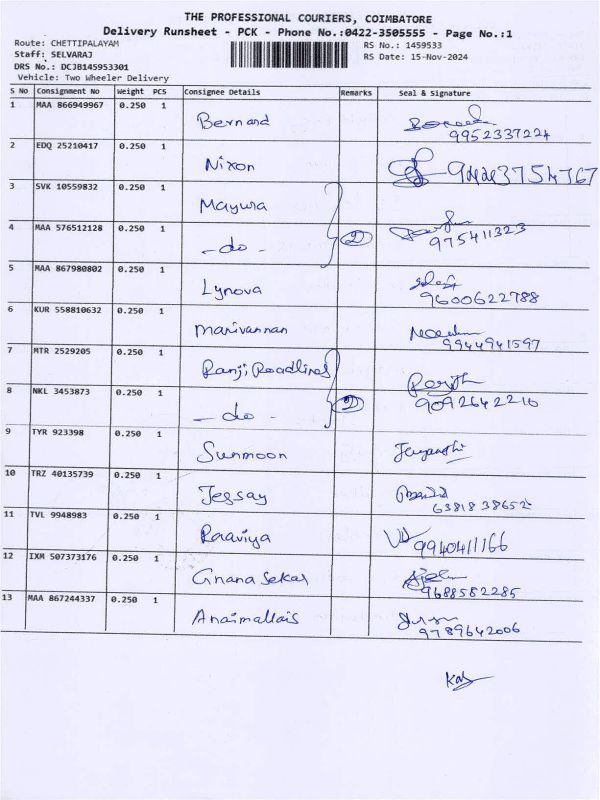 THE PROFESSIONAL COURIERS, COIMBATORE
Delivery Runsheet - PCK - Phone No.:0422-3505555 - Page No.:1
Route: CHETTIPALAYAM
Staff: SELVARAJ
DRS No.: DCJB145953301
Vehicle: Two Wheeler Delivery
RS No.: 1459533
RS Date: 15-Nov-2024
S No Consignment No Weight PCS Consignee Details Remarks Seal & Signature
1 MAA 866949967 0.250 1 Bernard
9952337224
2 EDQ 25210417 0.250 1 Nixon 9443754767
3 SVK 10559832 0.250 1 Mayura
4 MAA 576512128 0.250 1 - do - 2
975411323
5 MAA 867980802 0.250 1 Lynova
9600622788
6 KUR 558810632 0.250 1 Manivannan
9944941597
7 MTR 2529205 0.250 1 Ranji Roadlines
8 NKL 3453873 0.250 1 - do - 2
9092642210
9 TYR 923398 0.250 1 Sunmoon
10 TRZ 40135739 0.250 1 Jessay
6381838652
11 TVL 9948983 0.250 1 Raaviya
9940411166
12 IXM 507373176 0.250 1 Gnana Sekar
9688582285
13 MAA 867244337 0.250 1 Anaimallais
9789642006